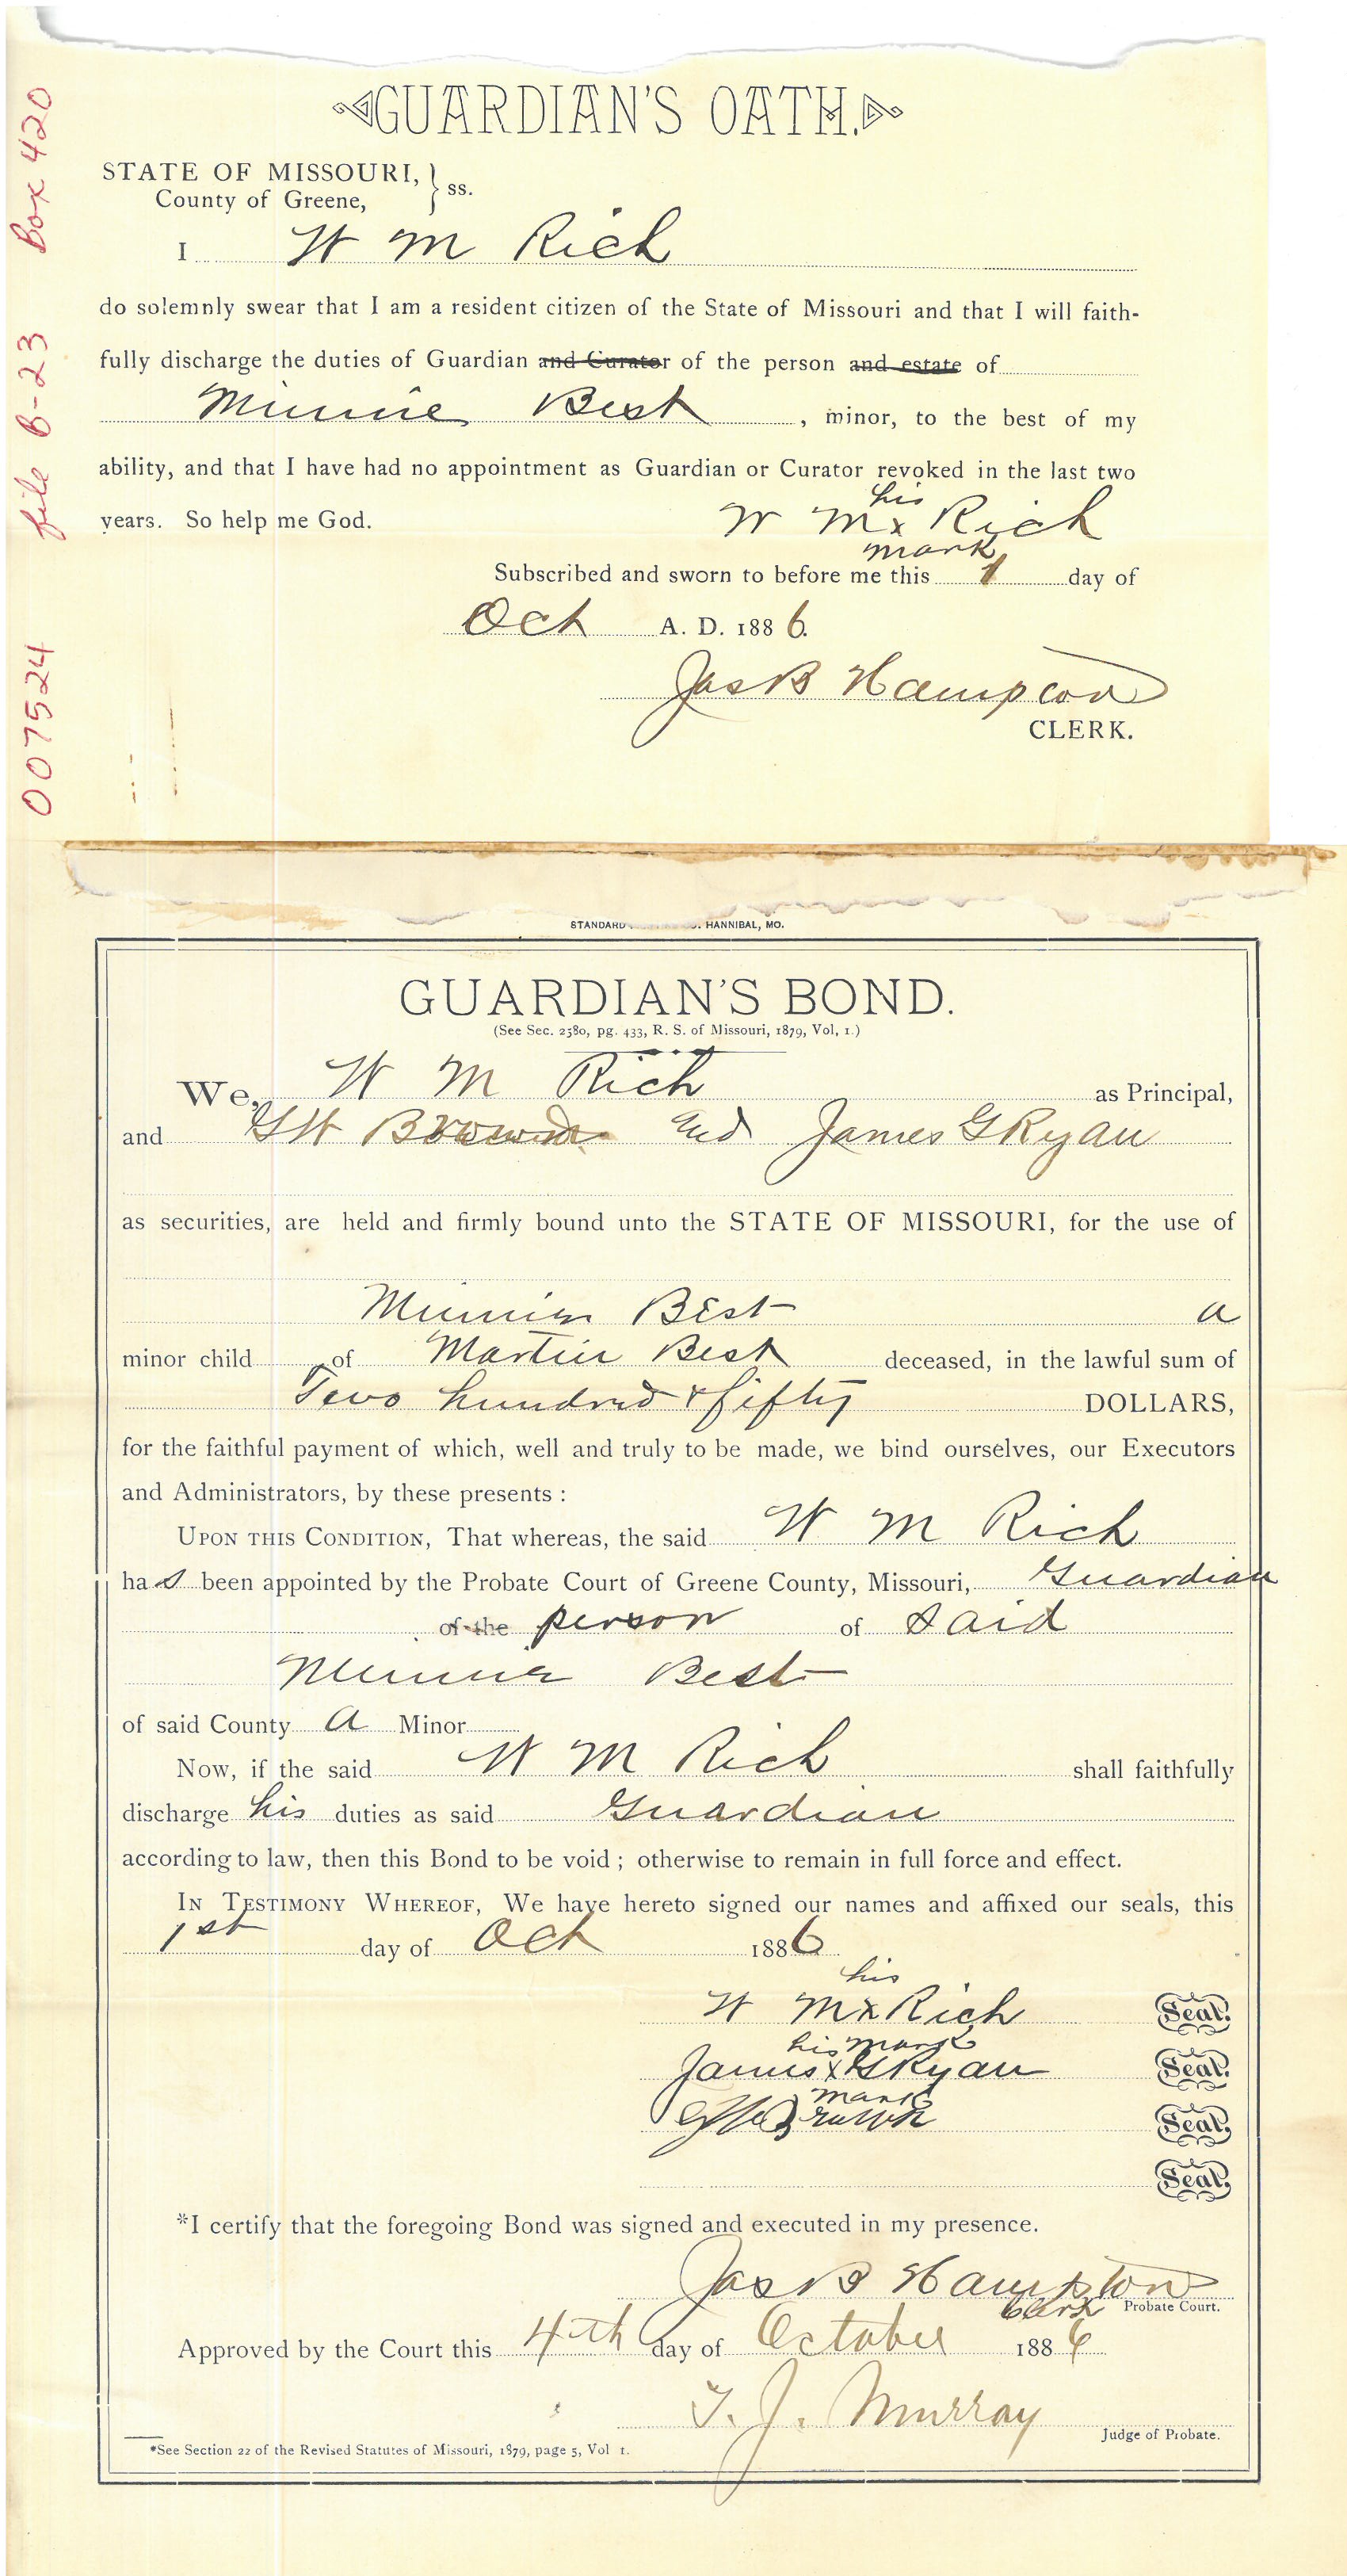 GUARDIAN'S OATH.
STATE OF MISSOURI, } ss.
County of Greene,
I W M Rich
do solemnly swear that I am a resident citizen of the State of Missouri and that I will faith-
fully discharge the duties of Guardian and Curator of the person and estate of
Minnie Best , minor, to the best of my
ability, and that I have had no appointment as Guardian or Curator revoked in the last two
his
years. So help me God. W M x Rich
mark
Subscribed and sworn to before me this 1 day of
Oct A. D. 1886.
Jas B Hampton
CLERK.
007524 file B-23 Box 420
STANDARD HANNIBAL, MO.
GUARDIAN'S BOND.
(See Sec. 2580, pg. 433, R. S. of Missouri, 1879, Vol, 1.)
We, W M Rich as Principal,
and G W Brown and James G Ryan
as securities, are held and firmly bound unto the STATE OF MISSOURI, for the use of
Minnie Best a
minor child of Martin Best deceased, in the lawful sum of
Two hundred & fifty DOLLARS,
for the faithful payment of which, well and truly to be made, we bind ourselves, our Executors
and Administrators, by these presents :
UPON THIS CONDITION, That whereas, the said W M Rich
has been appointed by the Probate Court of Greene County, Missouri, Guardian
of the person of said
Minnie Best
of said County a Minor
Now, if the said W M Rich shall faithfully
discharge his duties as said Guardian
according to law, then this Bond to be void ; otherwise to remain in full force and effect.
IN TESTIMONY WHEREOF, We have hereto signed our names and affixed our seals, this
1st day of Oct 1886
his
W M x Rich Seal.
his mark
James x G Ryan Seal.
mark
G W Brown Seal.
Seal.
*I certify that the foregoing Bond was signed and executed in my presence.
Jas B Hampton
Clerk Probate Court.
Approved by the Court this 4th day of October 1886
T. J. Murray
Judge of Probate.
*See Section 22 of the Revised Statutes of Missouri, 1879, page 5, Vol 1.